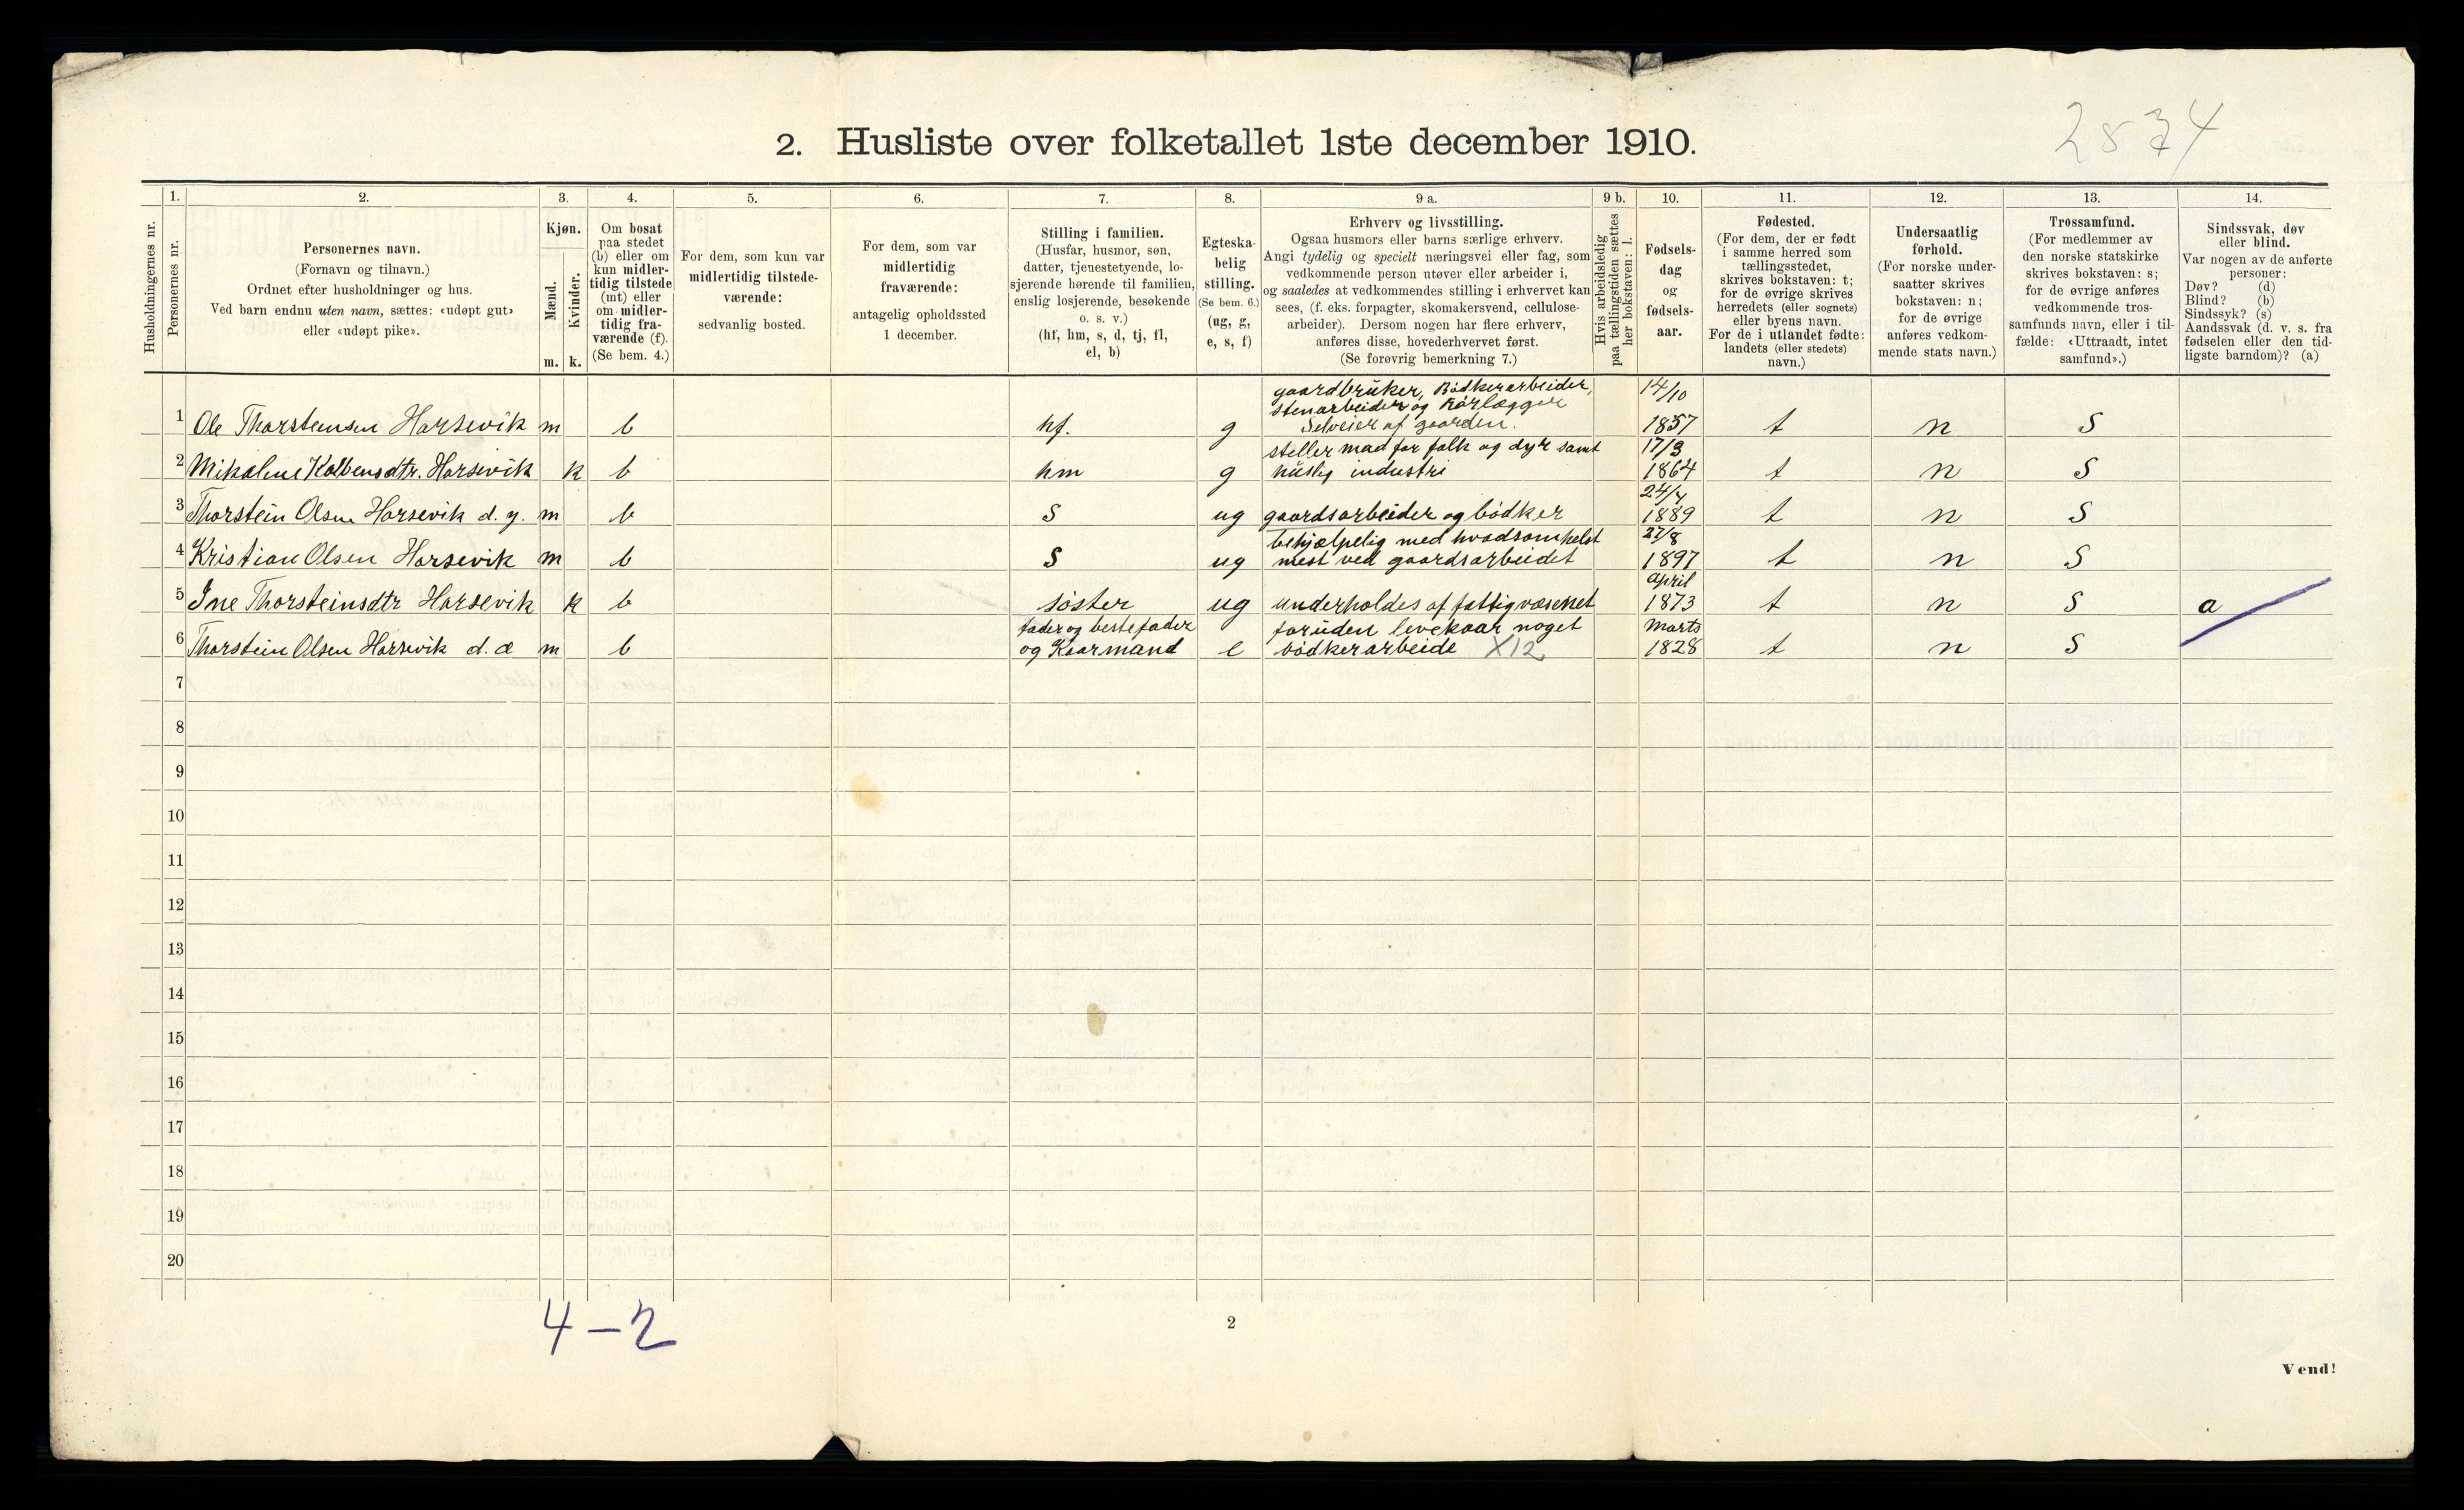 2874
2. Husliste over folketallet 1ste december 1910.
Husholdningernes nr.
1. Personernes nr.
2. Personernes navn.
(Fornavn og tilnavn.)
Ordnet efter husholdninger og hus.
Ved barn endnu uten navn, sættes: «udøpt gut»
eller «udøpt pike».
3. Kjøn.
Mænd. m.
Kvinder. k.
4. Om bosat
paa stedet
(b) eller om
kun midler-
tidig tilstede
(mt) eller
om midler-
tidig fra-
værende (f).
(Se bem. 4.)
5. For dem, som kun var
midlertidig tilstede-
værende:
sedvanlig bosted.
6. For dem, som var
midlertidig
fraværende:
antagelig opholdssted
1 december.
7. Stilling i familien.
(Husfar, husmor, søn,
datter, tjenestetyende, lo-
sjerende hørende til familien,
enslig losjerende, besøkende
o. s. v.)
(hf, hm, s, d, tj, fl,
el, b)
8. Egteska-
belig
stilling.
(Se bem. 6.)
(ug, g,
e, s, f)
9 a. Erhverv og livsstilling.
Ogsaa husmors eller barns særlige erhverv.
Angi tydelig og specielt næringsvei eller fag, som
vedkommende person utøver eller arbeider i,
og saaledes at vedkommendes stilling i erhvervet kan
sees, (f. eks. forpagter, skomakersvend, cellulose-
arbeider). Dersom nogen har flere erhverv,
anføres disse, hovederhvervet først.
(Se forøvrig bemerkning 7.)
9 b. Hvis arbeidsledig
paa tællingstiden sættes
her bokstaven: l.
10. Fødsels-
dag
og
fødsels-
aar.
11. Fødested.
(For dem, der er født
i samme herred som
tællingsstedet,
skrives bokstaven: t;
for de øvrige skrives
herredets (eller sognets)
eller byens navn.
For de i utlandet fødte:
landets (eller stedets)
navn.)
12. Undersaatlig
forhold.
(For norske under-
saatter skrives
bokstaven: n;
for de øvrige
anføres vedkom-
mende stats navn.)
13. Trossamfund.
(For medlemmer av
den norske statskirke
skrives bokstaven: s;
for de øvrige anføres
vedkommende tros-
samfunds navn, eller i til-
fælde: «Uttraadt, intet
samfund».)
14. Sindssvak, døv
eller blind.
Var nogen av de anførte
personer:
Døv? (d)
Blind? (b)
Sindssyk? (s)
Aandssvak (d. v. s. fra
fødselen eller den tid-
ligste barndom)? (a)
gaardbruker, Bødkerarbeider, 14/10
stenarbeider og Rørlægger
1 Ole Thorsteinsen Harsevik m b hf. g Selveier af gaarden. 1857 t n S
steller mad for folk og dyr samt 17/3
2 Mikaline Kolbensdtr. Harsevik k b hm g huslig industri 1864 t n S
24/4
3 Thorstein Olsen Harsevik d. y. m b S ug gaardsarbeider og bødker 1889 t n S
behjælpelig med hvadsomhelst 27/8
4 Kristian Olsen Harsevik m b S ug mest ved gaardsarbeidet 1897 t n S
April
5 Ine Thorsteinsdtr Harsevik k b søster ug underholdes af fattigvæsenet 1873 t n S a
fader og bestefader foruden levekaar noget Marts
6 Thorstein Olsen Harsevik d. æ m b og Kaarmand e bødkerarbeide X12 1828 t n S
7
8
9
10
11
12
13
14
15
16
17
18
19
20
4 – 2
2
Vend!